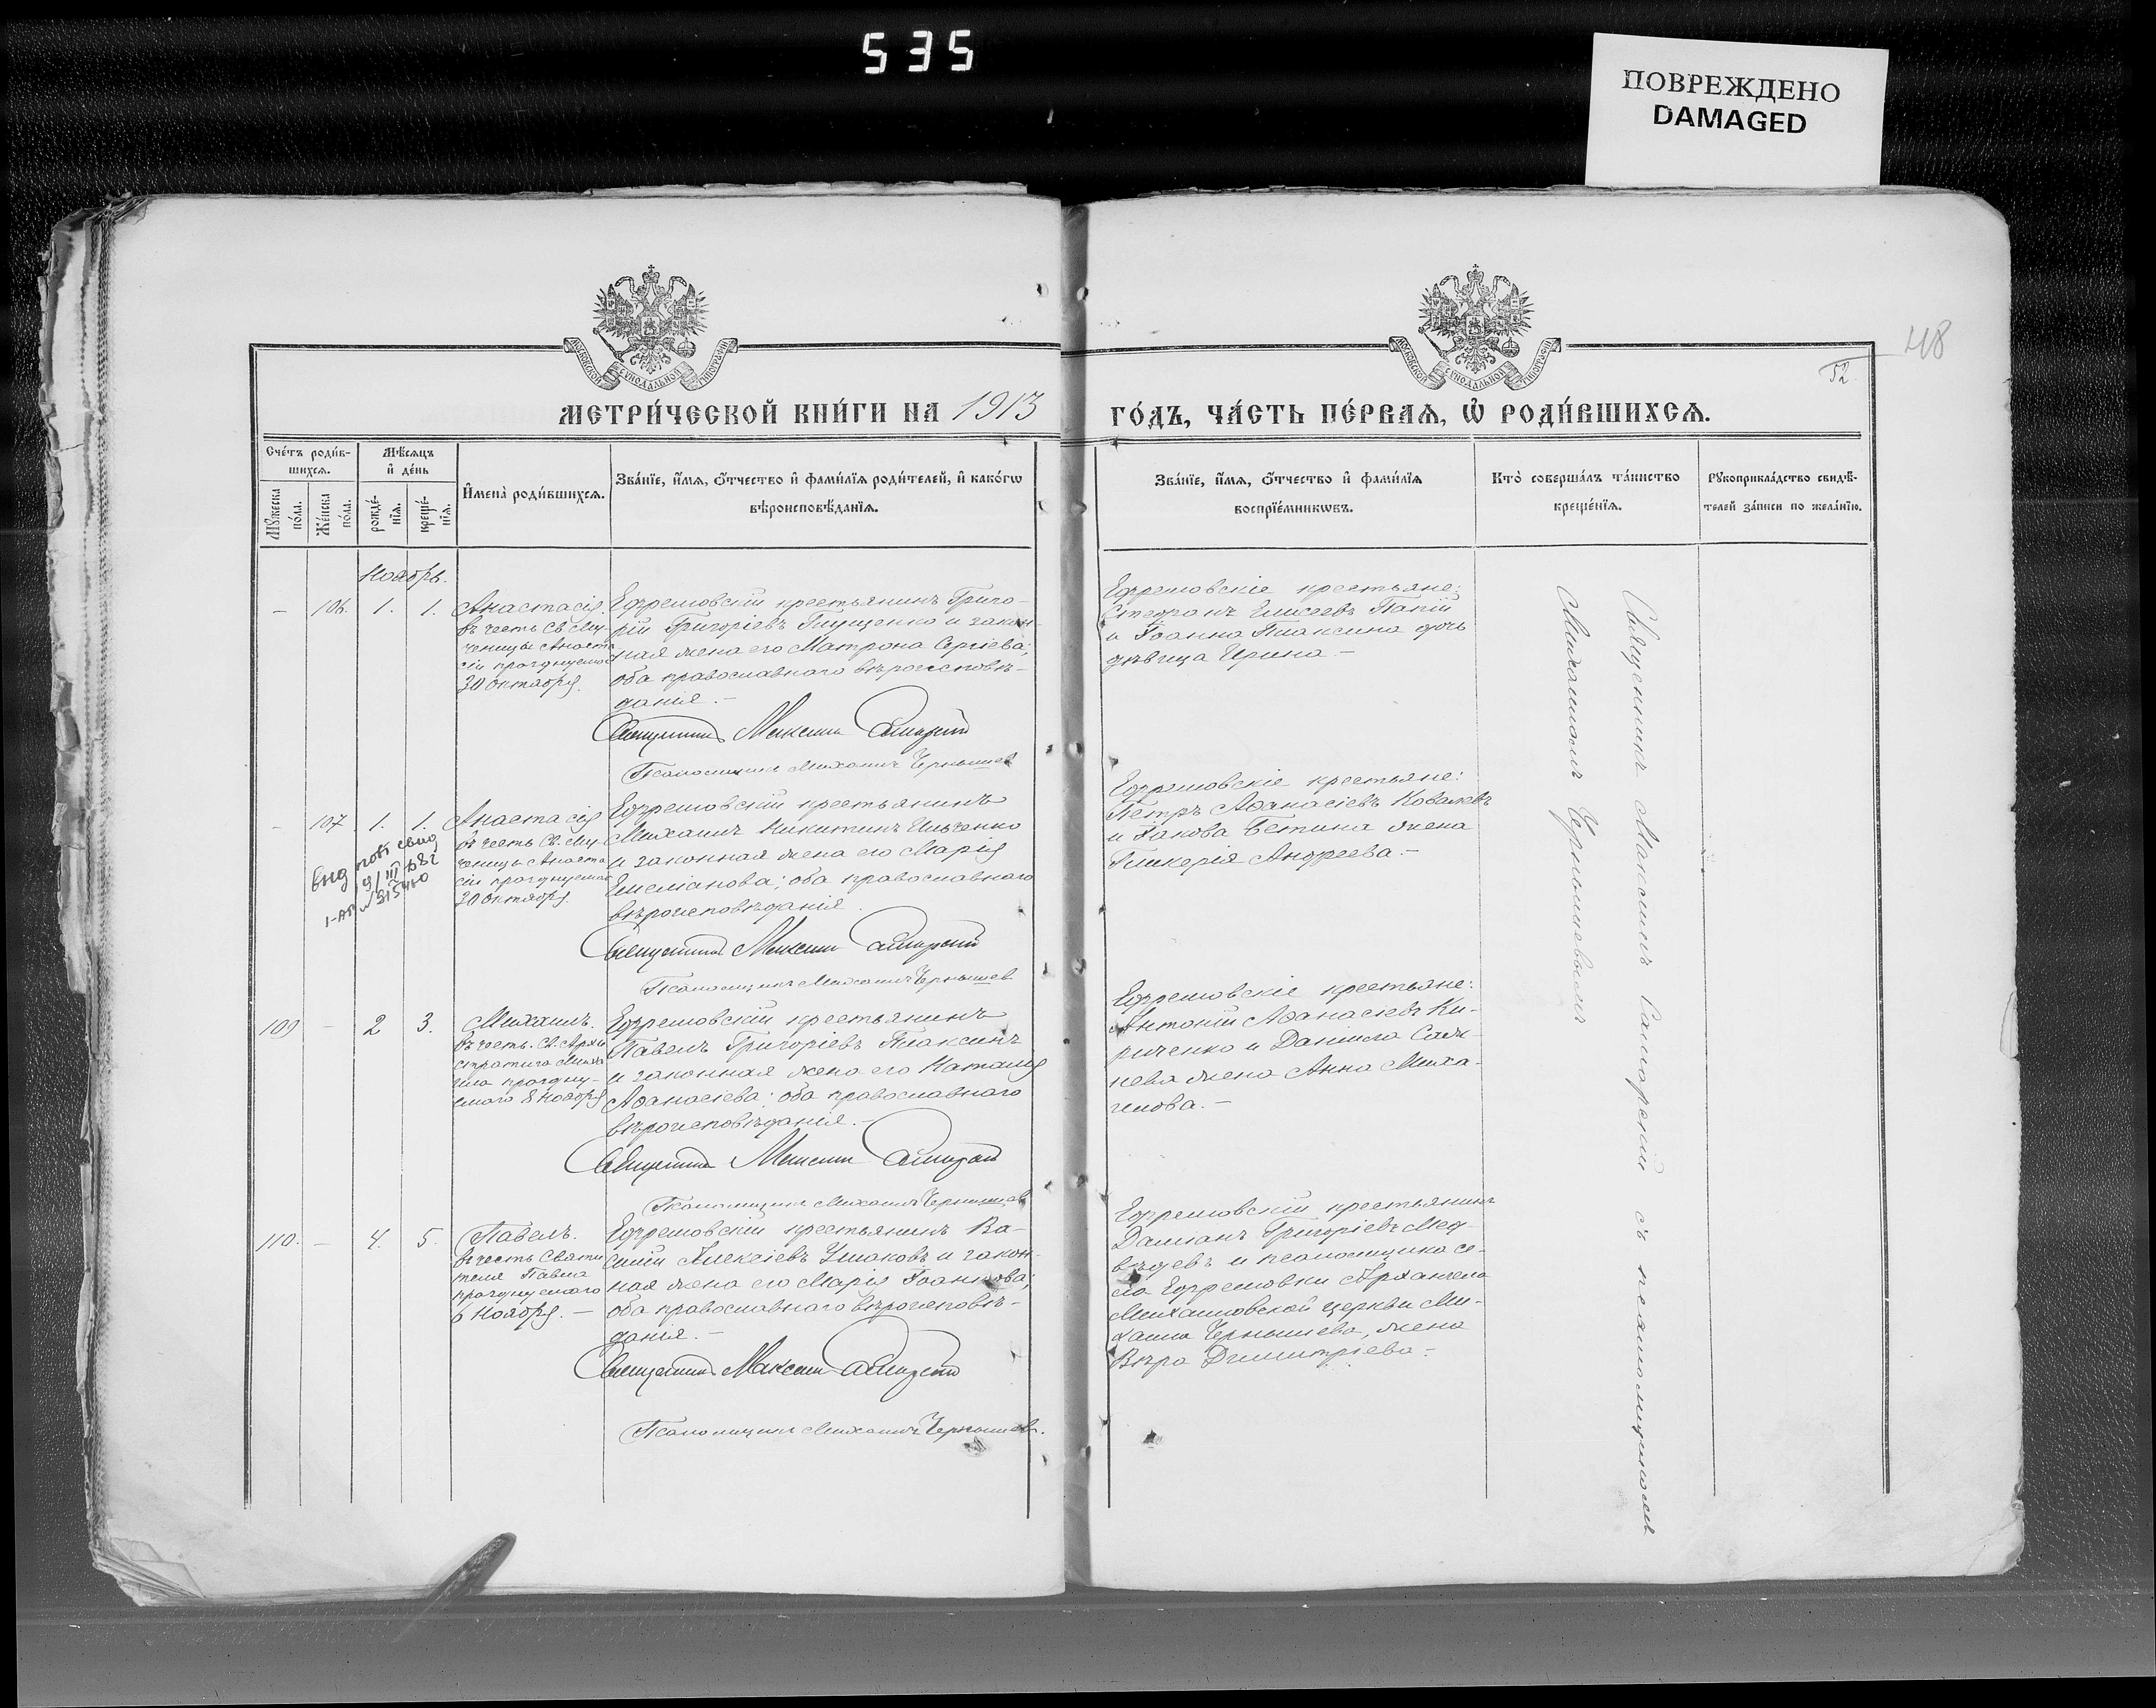 535
ПОВРЕЖДЕНО
DAMAGED
48
52
МЕТРИ́ЧЕСКОЙ КНИ́ГИ НА 1913
ГО́ДЪ, ЧА́СТЬ ПЕ́РВАѦ, Ѡ҆ РОДИ́ВШИХСѦ.
Сче́тъ роди́в-
шихсѧ.
Мѣ́сѧцъ
и҆ де́нь
Мꙋ́жеска
по́ла.
Же́нска
по́ла.
рожде́-
нїѧ.
креще́-
нїѧ.
И҆мена̀ роди́вшихсѧ.
Зва́нїе, и҆́мѧ, ѻ҆́тчество и҆ фами́лїѧ роди́телей, и҆ како́гѡ
вѣроисповѣ́данїѧ.
Зва́нїе, и҆́мѧ, ѻ҆́тчество и҆ фами́лїѧ
воспрїе́мникѡвъ.
Кто̀ соверша́лъ та́инство
креще́нїѧ.
Рꙋкоприкла́дство свидѣ́-
телей за́писи по жела́нїю.
Ноябрь.
– 106. 1. 1.
Анастасія.
въ честь Св. Му-
ченицы Анаста
сіи празднуемой
30 Октября.
Ефремовскій крестьянинъ Григо-
рій Григоріевъ Тищенко и закон-
ная жена его Матрона Сергіева;
оба православнаго вѣроисповѣ-
данія. –
Священникъ Максим Самарскій
Псаломщикъ Михаилъ Чернышев
Ефремовскіе крестьяне:
Стефанъ Елисеевъ Папій
и Іоанна Плаксина дочь
дѣвица Ирина –
– 107. 1. 1.
Анастасія
въ честь Св. Му-
ченицы Анаста
сіи празднуемой
30 Октября
выд повт свид
Ефремовскій крестьянинъ
Михаилъ Никитинъ Ильченко
и законная жена его Марія
Емеліанова; оба православнаго
вѣроисповѣданія.
Священникъ Максим Самарскій
Псаломщикъ Михаилъ Чернышев
Ефремовскіе крестьяне:
Петръ Аѳанасіевъ Ковалевъ
и Іакова Бетина жена
Гликерія Андреева. –
109 – 2 3.
Михаилъ.
въ честь. Св. Архи
стратига Миха
ила праздну-
емаго 8 Ноября
Ефремовскій крестьянинъ
Павелъ Григоріевъ Плаксинъ
и законная жена его Наталія
Аѳанасіева; оба православнаго
вѣроисповѣданія. –
Священникъ Максим Самарскій
Псаломщикъ Михаилъ Чернышев
Ефремовскіе крестьяне:
Антоній Аѳанасіевъ Ки-
риченко и Даніила
жена Анна Миха-
илова. –
110. – 4. 5.
Павелъ.
въ честь Святи
теля Павла
празднуемаго
6 Ноября. –
Ефремовскій крестьянинъ Ва-
силій Алексіевъ Ушаковъ и закон-
ная жена его Марія Іоаннова;
оба православнаго вѣроисповѣ-
данія. –
Священникъ Максим Самарскій
Псаломщикъ Михаилъ Чернышев.
Ефремовскій крестьянинъ
Даміанъ Григоріевъ Мед-
вѣдевъ и псаломщика се-
ла Ефремовки Архангело
Михаиловской церкви Ми-
хаила Чернышева, жена
Вѣра Димитріева –
Священникъ Максимъ Самарскій съ псаломщикомъ
Михаиломъ Чернышевымъ